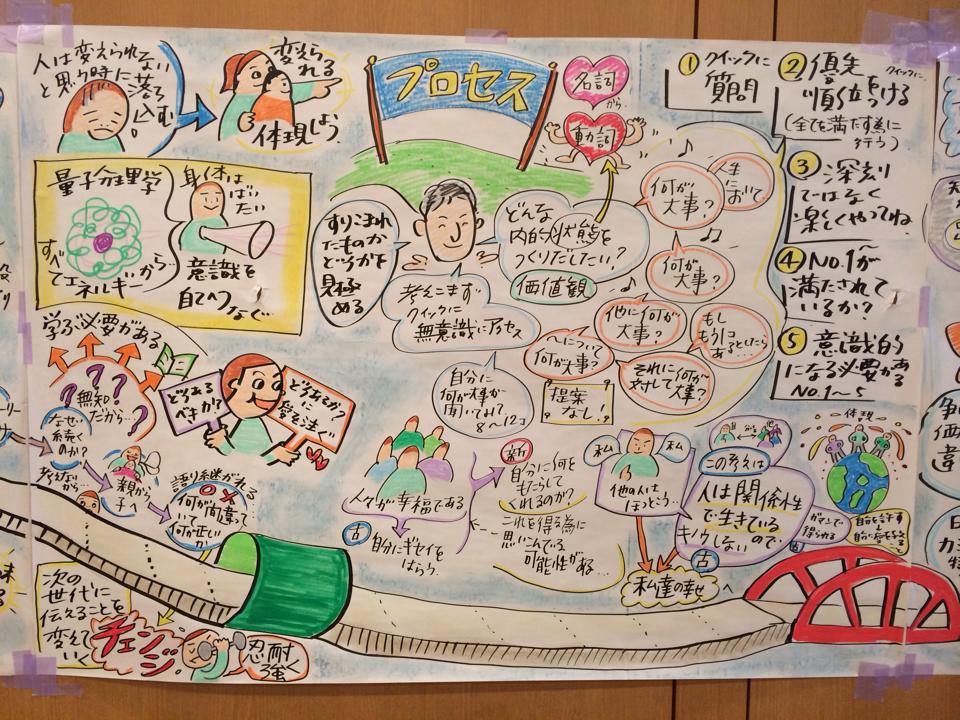 人は変えられない
と思う時に落ち
込む。
変えら
れる
体現しよう
プロセス
名詞
から
動詞
① クイックに
質問
② 優先 クイックに
順位をつける
(全てを満たす為に
行う)
③ 深刻
ではなく
楽しくやってね
④ No.1が
満たされて
いるか?
⑤ 意識的
になる必要がある
No.1〜5
量子物理学
すべて
エネルギーから
身体は
ばいたい
意識を
自へつなぐ
すりこまれ
たものか
どうか下
見極
める
どんな
内的状態を
つくりだしたい?
価値観
考えこまず
クイックに
無意識にアクセス
何が
大事?
人生
において
何が
大事?
他に何が
大事?
もし
もう1コ
あるとしたら
〜について
何が大事?
それに
対して何が
大事?
提案
なし!
自分に
何が大事か
聞いてみて
8〜12コ
学ぶ必要がある
???
無知
だから…
?
どうある
べきか?
どうあるか?
に
愛を注ぐ
なぜ
続く
のか?
考えながら…
親から
子へ
語り継がれる
○×
何が間違って
いて
何が正しい
か
人々が幸福である
古
自分にギセイを
はらう。
新
自分に何を
もたらして
くれるのか?
これを得る為に
思いこんでいる
可能性がある…
私
私
他の人は
ほっとう…
この考えは
人は関係性
で生きている
ので
キノウしない
古
私達の幸せへ
体現
ガマンで
得られる
自分を許す
次の
世代に
伝えることを
変えて
いく
チェンジ。
忍耐
強く